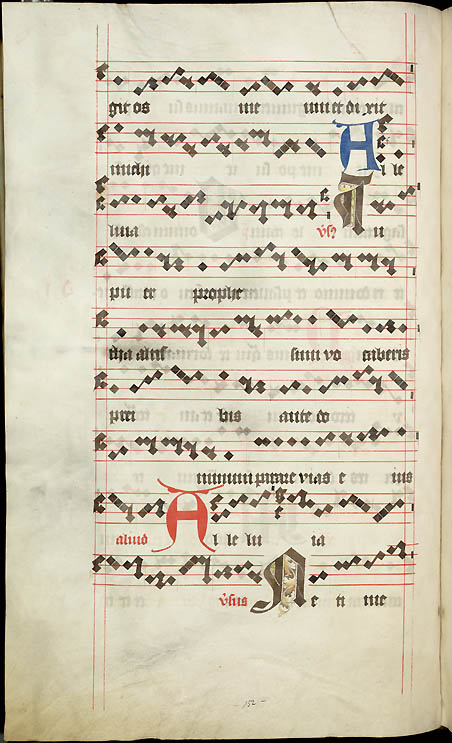 git os me um et di xit
michi Al le
luia v̄s Tu
pu er prophe
tha altis simi vo caberis
prei bis ante do
minum parare vias e ius
aliud Al le lu ia
v̄sus Ne ti me
-152-